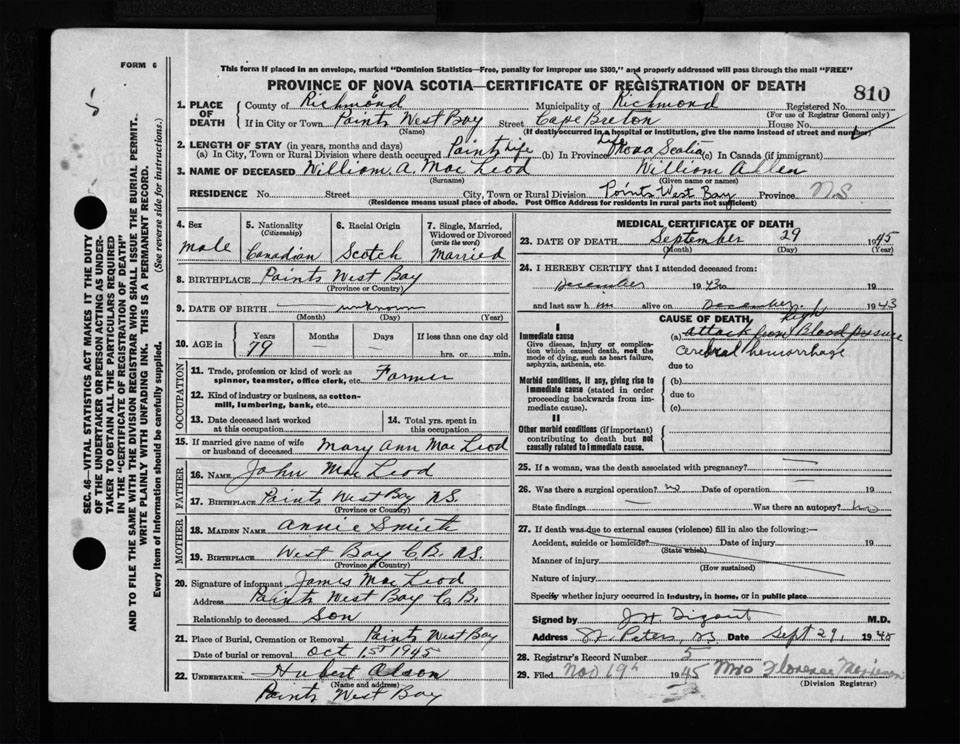 FORM 6
This form if placed in an envelope, marked "Dominion Statistics—Free, penalty for improper use $300," and properly addressed will pass through the mail "FREE"
PROVINCE OF NOVA SCOTIA—CERTIFICATE OF REGISTRATION OF DEATH
810
1. PLACE OF DEATH { County of Richmond Municipality of Richmond Registered No.
(For use of Registrar General only)
If in City or Town Points West Bay Street Cape Breton House No.
(Name) (If death occurred in a hospital or institution, give the name instead of street and number)
2. LENGTH OF STAY (in years, months and days)
(a) In City, Town or Rural Division where death occurred Points Life (b) In Province Life Nova Scotia (c) In Canada (if immigrant)
3. NAME OF DECEASED William. A. Mac Leod William Allen
(Surname) (Given name or names)
RESIDENCE No. Street City, Town or Rural Division Points West Bay Province N S
(Residence means usual place of abode. Post Office Address for residents in rural parts not sufficient)
4. Sex
male
5. Nationality (Citizenship)
Canadian
6. Racial Origin
Scotch
7. Single, Married, Widowed or Divorced (write the word)
Married
8. BIRTHPLACE Points West Bay
(Province or Country)
9. DATE OF BIRTH unknown
(Month) (Day) (Year)
10. AGE in { Years Months Days If less than one day old
79 — — hrs. or min.
OCCUPATION
11. Trade, profession or kind of work as spinner, teamster, office clerk, etc. Farmer
12. Kind of industry or business, as cotton-mill, lumbering, bank, etc.
13. Date deceased last worked at this occupation
14. Total yrs. spent in this occupation
15. If married give name of wife or husband of deceased Mary Ann Mac Leod
FATHER
16. NAME John Mac Leod
17. BIRTHPLACE Points West Bay N.S.
(Province or Country)
MOTHER
18. MAIDEN NAME Annie Smith
19. BIRTHPLACE West Bay C.B. N.S.
(Province or Country)
20. Signature of informant James Mac Leod
Address Points West Bay C.B.
Relationship to deceased Son
21. Place of Burial, Cremation or Removal Points West Bay
Date of burial or removal Oct 1st 1945
22. UNDERTAKER Hubert
(Name and address)
Points West Bay
MEDICAL CERTIFICATE OF DEATH
23. DATE OF DEATH September 29 1945
(Month) (Day) (Year)
24. I HEREBY CERTIFY that I attended deceased from:
December 1943 to
and last saw h im alive on December 1943
CAUSE OF DEATH
I
Immediate cause
Give disease, injury or complication which caused death, not the mode of dying, such as heart failure, asphyxia, asthenia, etc.
(a) attack from High Blood pressure
cerebral hemorrhage
due to
Morbid conditions, if any, giving rise to immediate cause (stated in order proceeding backwards from immediate cause).
(b)
due to
(c)
II
Other morbid conditions (if important) contributing to death but not causally related to immediate cause.
25. If a woman, was the death associated with pregnancy? —
26. Was there a surgical operation? no Date of operation — 19
State findings Was there an autopsy? no
27. If death was due to external causes (violence) fill in also the following:—
Accident, suicide or homicide? Date of injury 19
(State which)
Manner of injury
(How sustained)
Nature of injury
Specify whether injury occurred in industry, in home, or in public place
Signed by M.D.
Address St. Peters, NS Date Sept 29, 1945
28. Registrar's Record Number 5
29. Filed Nov 19th 1945 Mrs Florence
(Division Registrar)
5
SEC. 46—VITAL STATISTICS ACT MAKES IT THE DUTY
OF THE UNDERTAKER OR PERSON ACTING AS UNDERTAKER
TO OBTAIN ALL THE PARTICULARS REQUIRED
IN THE "CERTIFICATE OF REGISTRATION OF DEATH"
AND TO FILE THE SAME WITH THE DIVISION REGISTRAR WHO SHALL ISSUE THE BURIAL PERMIT.
WRITE PLAINLY WITH UNFADING INK. THIS IS A PERMANENT RECORD.
Every item of Information should be carefully supplied. (See reverse side for instructions.)